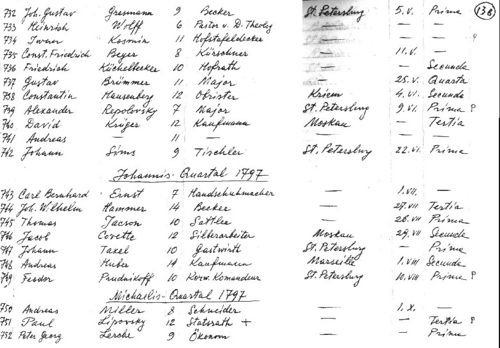 732 Joh. Gustav Gressmann 9 Becker St. Petersburg 5. V. Prima 138
733 Heinrich Wolff 6 Pastor v. D. Theolog — — —
734 Iwan Kosmin 11 Hofstafeldecker — — — ?
735 Const. Friedrich Beyer 8 Kürschner — 11. V. —
736 Friedrich Küchelbecker 10 Hofrath — — Secunda
737 Gustav Brümmer 11 Major — 25. V. Quarta
738 Constantin Hausenberg 12 Obrister Kriem 4. VI. Secunda
739 Alexander Repolovsky 7 Major St. Petersburg 9. VI. Prima ?
740 David Krüger 12 Kaufmann Moskau — Tertia
741 Andreas — 11 — — —
742 Johann Sims 9 Tischler St. Petersburg 22. VI. Prima
Johannis-Quartal 1797
743 Carl Bernhard Ernst 7 Handschuhmacher — 1. VII. —
744 Joh. Wilhelm Hammer 14 Becker — 27. VII Tertia
745 Thomas Jacson 10 Sattler — 28. VII Prima
746 Jacob Covette 12 Silberarbeiter Moskau 29. VII Secunda
747 Johann Taxel 10 Gastwirth St. Petersburg — Prima
748 Andreas Huber 14 Kaufmann Marseille 1. VIII Secunda
749 Feodor Prudnikoff 10 Komandeur St. Petersburg 10. VIII Prima ?
Michaelis-Quartal 1797
750 Andreas Miller 8 Schneider — 1. X. —
751 Paul Lipovsky 12 Statsrath + — — Tertia ?
752 Peter Georg Lerche 9 Ökonom — — Prima